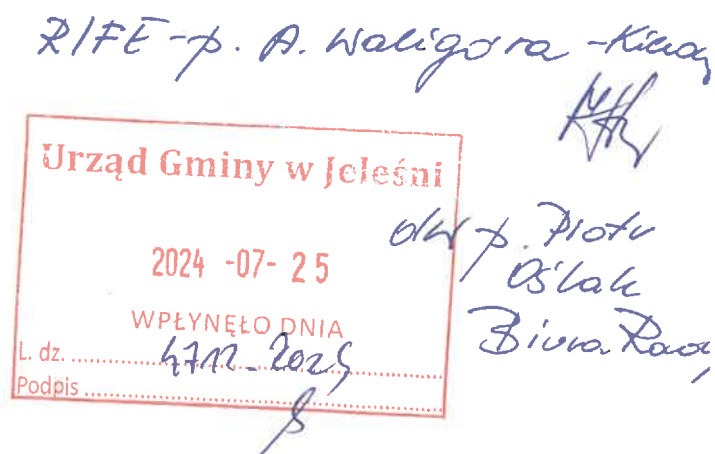 RIFE - p. A. Waligóra -
Urząd Gminy w Jeleśni
2024 -07- 25
WPŁYNĘŁO DNIA
L. dz.
Podpis
dw p. Piotr
Oślak
Biura Rady